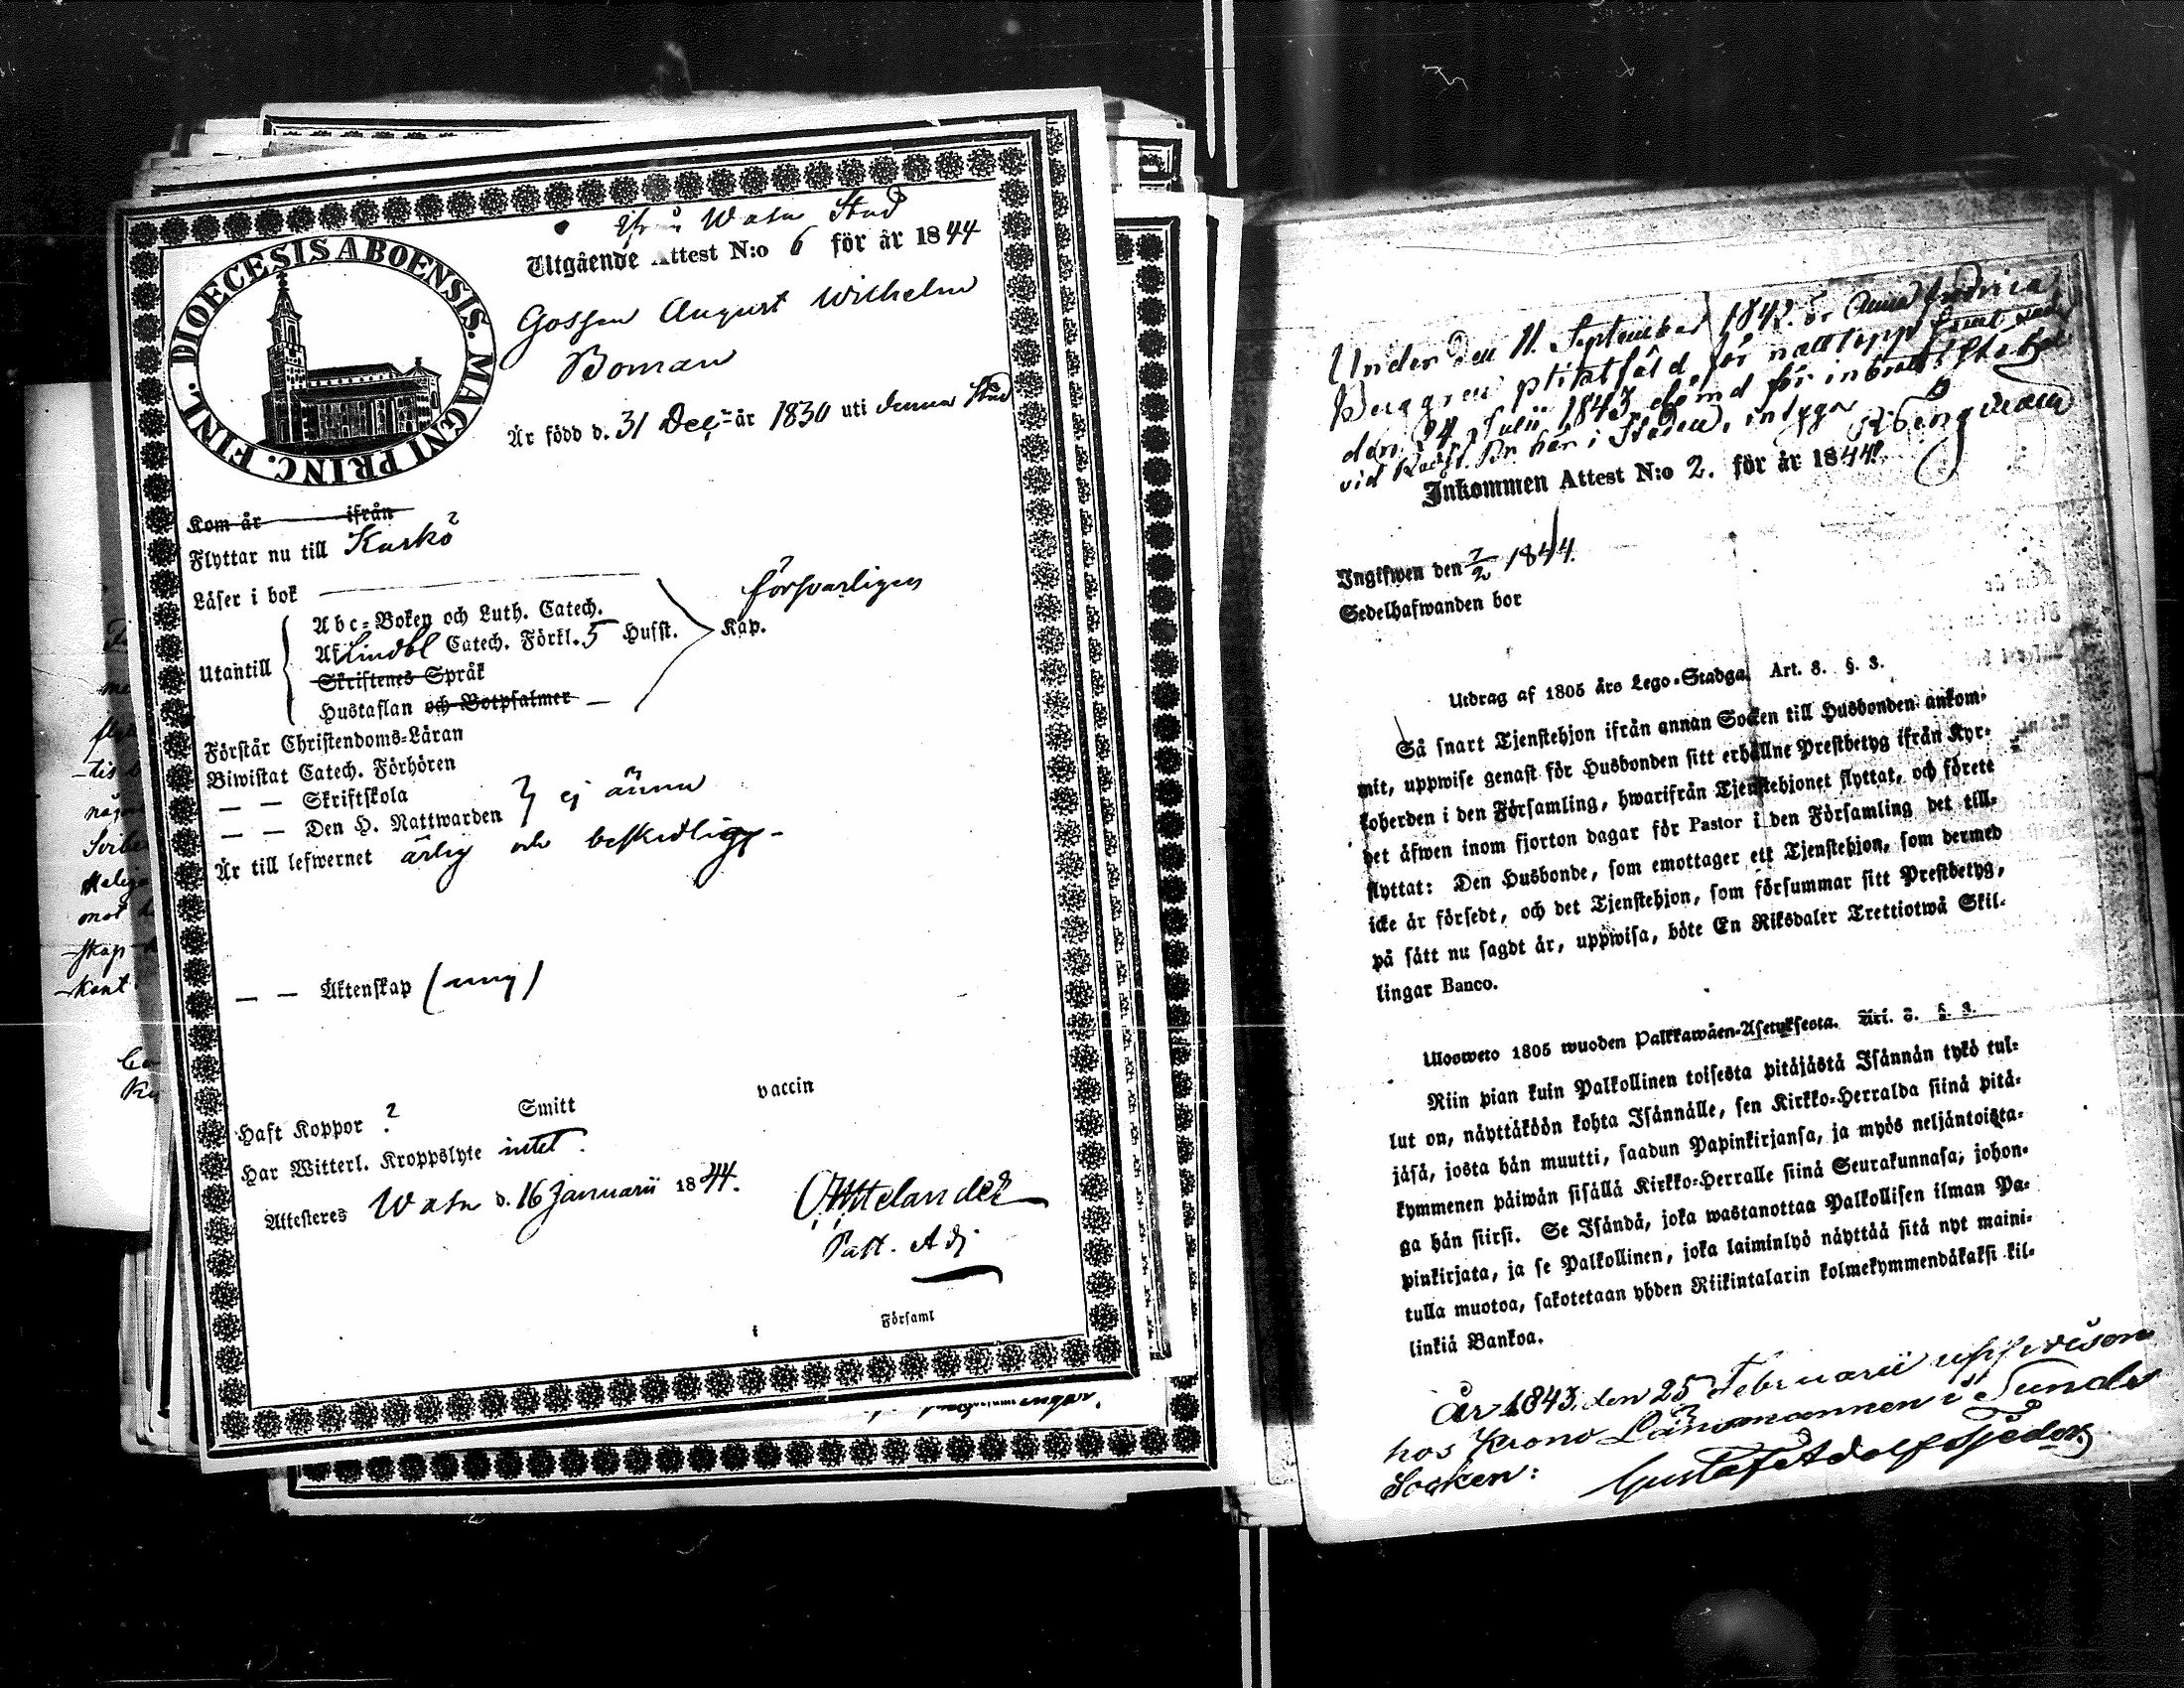 DIOECESIS ABOENSIS. MAGNI PRINC. FINL.
Ifrån Wasa Stad
Utgående Attest N:o 6 för år 1844
Gossen August Wilhelm
Boman
Är född d. 31 Dec. år 1830 uti denna Stad
Kom år ifrån
Flyttar nu till Kaskö
Läser i bok
försvarligen
Utantill
Abc-Boken och Luth. Catech.
Af Lindbl Catech. Förkl. 5 Hufst. Kap.
Skriftenes Språk
Hustaflan och Botpsalmer
Förstår Christendoms-Läran
Biwistat Catech. Förhören
— — Skriftskola
— — Den H. Nattwarden } ej ännu
Är till lefwernet ärlig och beskedlig
— — Äktenskap (ung)
Haft Koppor ? Smitt vaccin
Har Witterl. Kroppslyte intet.
Attesteres Wasa d. 16 Januarii 1844.
Past. Adj
i Församl
Under den 11. September 1842 är Anna Fredrica
Berggren pliktfäld för natlopp samt
den 24 Julii 1843 dömd för inbrott
vid här i Staden, intygar
Inkommen Attest N:o 2. för år 1844.
Ingifwen den 7/2 1844.
Sedelhafwanden bor
Utdrag af 1805 års Lego-Stadga. Art. 3. §. 3.
Så snart Tjenstehjon ifrån annan Socken till Husbonden ankom-
mit, uppwise genast för Husbonden sitt erhållne Prestbetyg ifrån Kyr-
koherden i den Församling, hwarifrån Tjenstehjonet flyttat, och förete
det äfwen inom fjorton dagar för Pastor i den Församling det till-
flyttat: Den Husbonde, som emottager ett Tjenstehjon, som dermed
icke är försedt, och det Tjenstehjon, som försummar sitt Prestbetyg,
på sätt nu sagdt är, uppwisa, böte En Riksdaler Trettiotwå Skil-
lingar Banco.
Ulosweto 1805 wuoden Palkkawäen-Asetuksesta. Art. 3. §. 3.
Niin pian kuin Palkollinen toisesta pitäjästä Isännän tykö tul-
lut on, näyttäköön kohta Isännälle, sen Kirkko-Herralda siinä pitä-
jäsä, josta hän muutti, saadun Papinkirjansa, ja myös neljäntoista-
kymmenen päiwän sisällä Kirkko-Herralle siinä Seurakunnasa, johon-
ga hän siirsi. Se Isändä, joka wastanottaa Palkollisen ilman Pa-
pinkirjata, ja se Palkollinen, joka laiminlyö näyttää sitä nyt maini-
tulla muotoa, sakotetaan yhden Riikintalarin kolmekymmendäkaksi kil-
linkiä Bankoa.
År 1843. den 25 Februarii uppvison
hos Krono Länsmannen i Sunds
Socken:
Gustaf Adolf